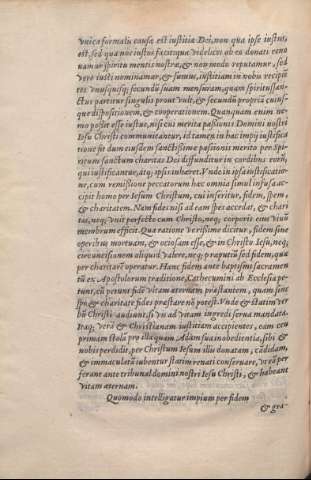 vnica formalis causa est iustitia Dei, non qua ipse iustus
est, sed qua nos iustos facit, qua videlicet ab eo donati reno
uamur spiritu mentis nostræ, & non modo reputamur, sed
vere iusti nominamur, & sumus, iustitiam in nobis recipiē
tes vnusquisq; secundū suam mensuram, quam spiritussan-
ctus partitur singulis prout vult, & secundū propriā cuius-
que dispositionem, & cooperationem. Quanquam enim ne
mo possit esse iustus, nisi cui merita passionis Domini nostri
Iesu Christi communicantur, id tamen in hac impij iustifica
tione fit dum eiusdem sanctissimæ passionis merito per Spi-
ritum sanctum charitas Dei diffunditur in cordibus eorū,
qui iustificantur, atq; ipsis inhæret. Vnde in ipsa iustificatio-
ne, cum remissione peccatorum hæc omnia simul infusa ac-
cipit homo per Iesum Christum, cui inseritur, fidem, spem,
& charitatem. Nam fides nisi ad eam spes accedat, & chari
tas, neq; vnit perfecte cum Christo, neq; corporis eius viuū
membrum efficit. Qua ratione verissime dicitur, fidem sine
operibus mortuam, & ociosam esse, & in Christo Iesu, neq;
circuncisionem aliquid valere, neq; præputiū sed fidem, quæ
per charitatē operatur. Hanc fidem ante baptismi sacramen
tū ex Apostolorum traditione, Catbecumini ab Ecclesia pe-
tunt, cū petunt fidē vitam æternam præstantem, quam sine
spe, & charitate fides præstare nō potest. Vnde & statim ver
bū Christi audiunt, si vis ad vitam ingredi serua mandata.
Itaq; verā & Christianam iustitiam accipientes, eam ceu
primam stolā pro illa, quam Adam sua inobedientia, sibi &
nobis perdidit, per Christum Iesum illis donatam, cādidam,
& immaculatā iubentur statim renati conseruare, vt eā per
ferant ante tribunal domini nostri Iesu Christi, & habeant
vitam æternam.
Quomodo intelligatur impium per fidem
& gra-